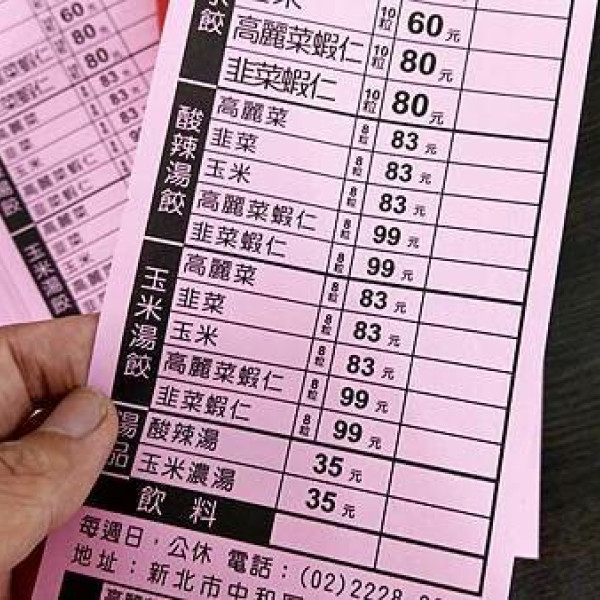 水餃
玉米 10粒 60元
高麗菜蝦仁 10粒 80元
韭菜蝦仁 10粒 80元
酸辣湯餃
高麗菜 8粒 83元
韭菜 8粒 83元
玉米 8粒 83元
高麗菜蝦仁 8粒 99元
韭菜蝦仁 8粒 99元
玉米湯餃
高麗菜 8粒 83元
韭菜 8粒 83元
玉米 8粒 83元
高麗菜蝦仁 8粒 99元
韭菜蝦仁 8粒 99元
湯品
酸辣湯 35元
玉米濃湯 35元
飲料
每週日，公休 電話：(02)2228
地址：新北市中和